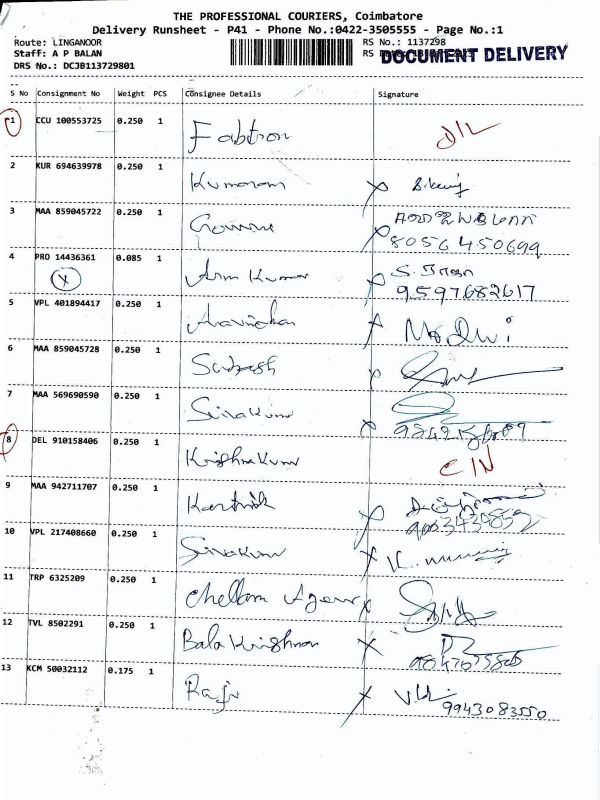 THE PROFESSIONAL COURIERS, Coimbatore
Delivery Runsheet - P41 - Phone No.:0422-3505555 - Page No.:1
Route: LINGANOOR RS No.: 1137298
Staff: A P BALAN RS DOCUMENT DELIVERY
DRS No.: DCJB113729801
S No Consignment No Weight PCS Consignee Details Signature
1 CCU 100553725 0.250 1 Fabtron D/L
2 KUR 694639978 0.250 1 Kumaram X
3 MAA 859045722 0.250 1 X
8056450699
4 PRO 14436361 0.085 1 Arun Kumar X S.
X 9597682617
5 VPL 401894417 0.250 1 Aravindan X
6 MAA 859045728 0.250 1 Subash X
7 MAA 569690590 0.250 1 Sivakum X
8 DEL 910158406 0.250 1 Krishnakum C/N
9 MAA 942711707 0.250 1 Karthik X
10 VPL 217408660 0.250 1 Sivakum X
11 TRP 6325209 0.250 1 Chellam Agenc X
12 TVL 8502291 0.250 1 Bala Krishnan X
13 KCM 50032112 0.175 1 Raju X
9943083550